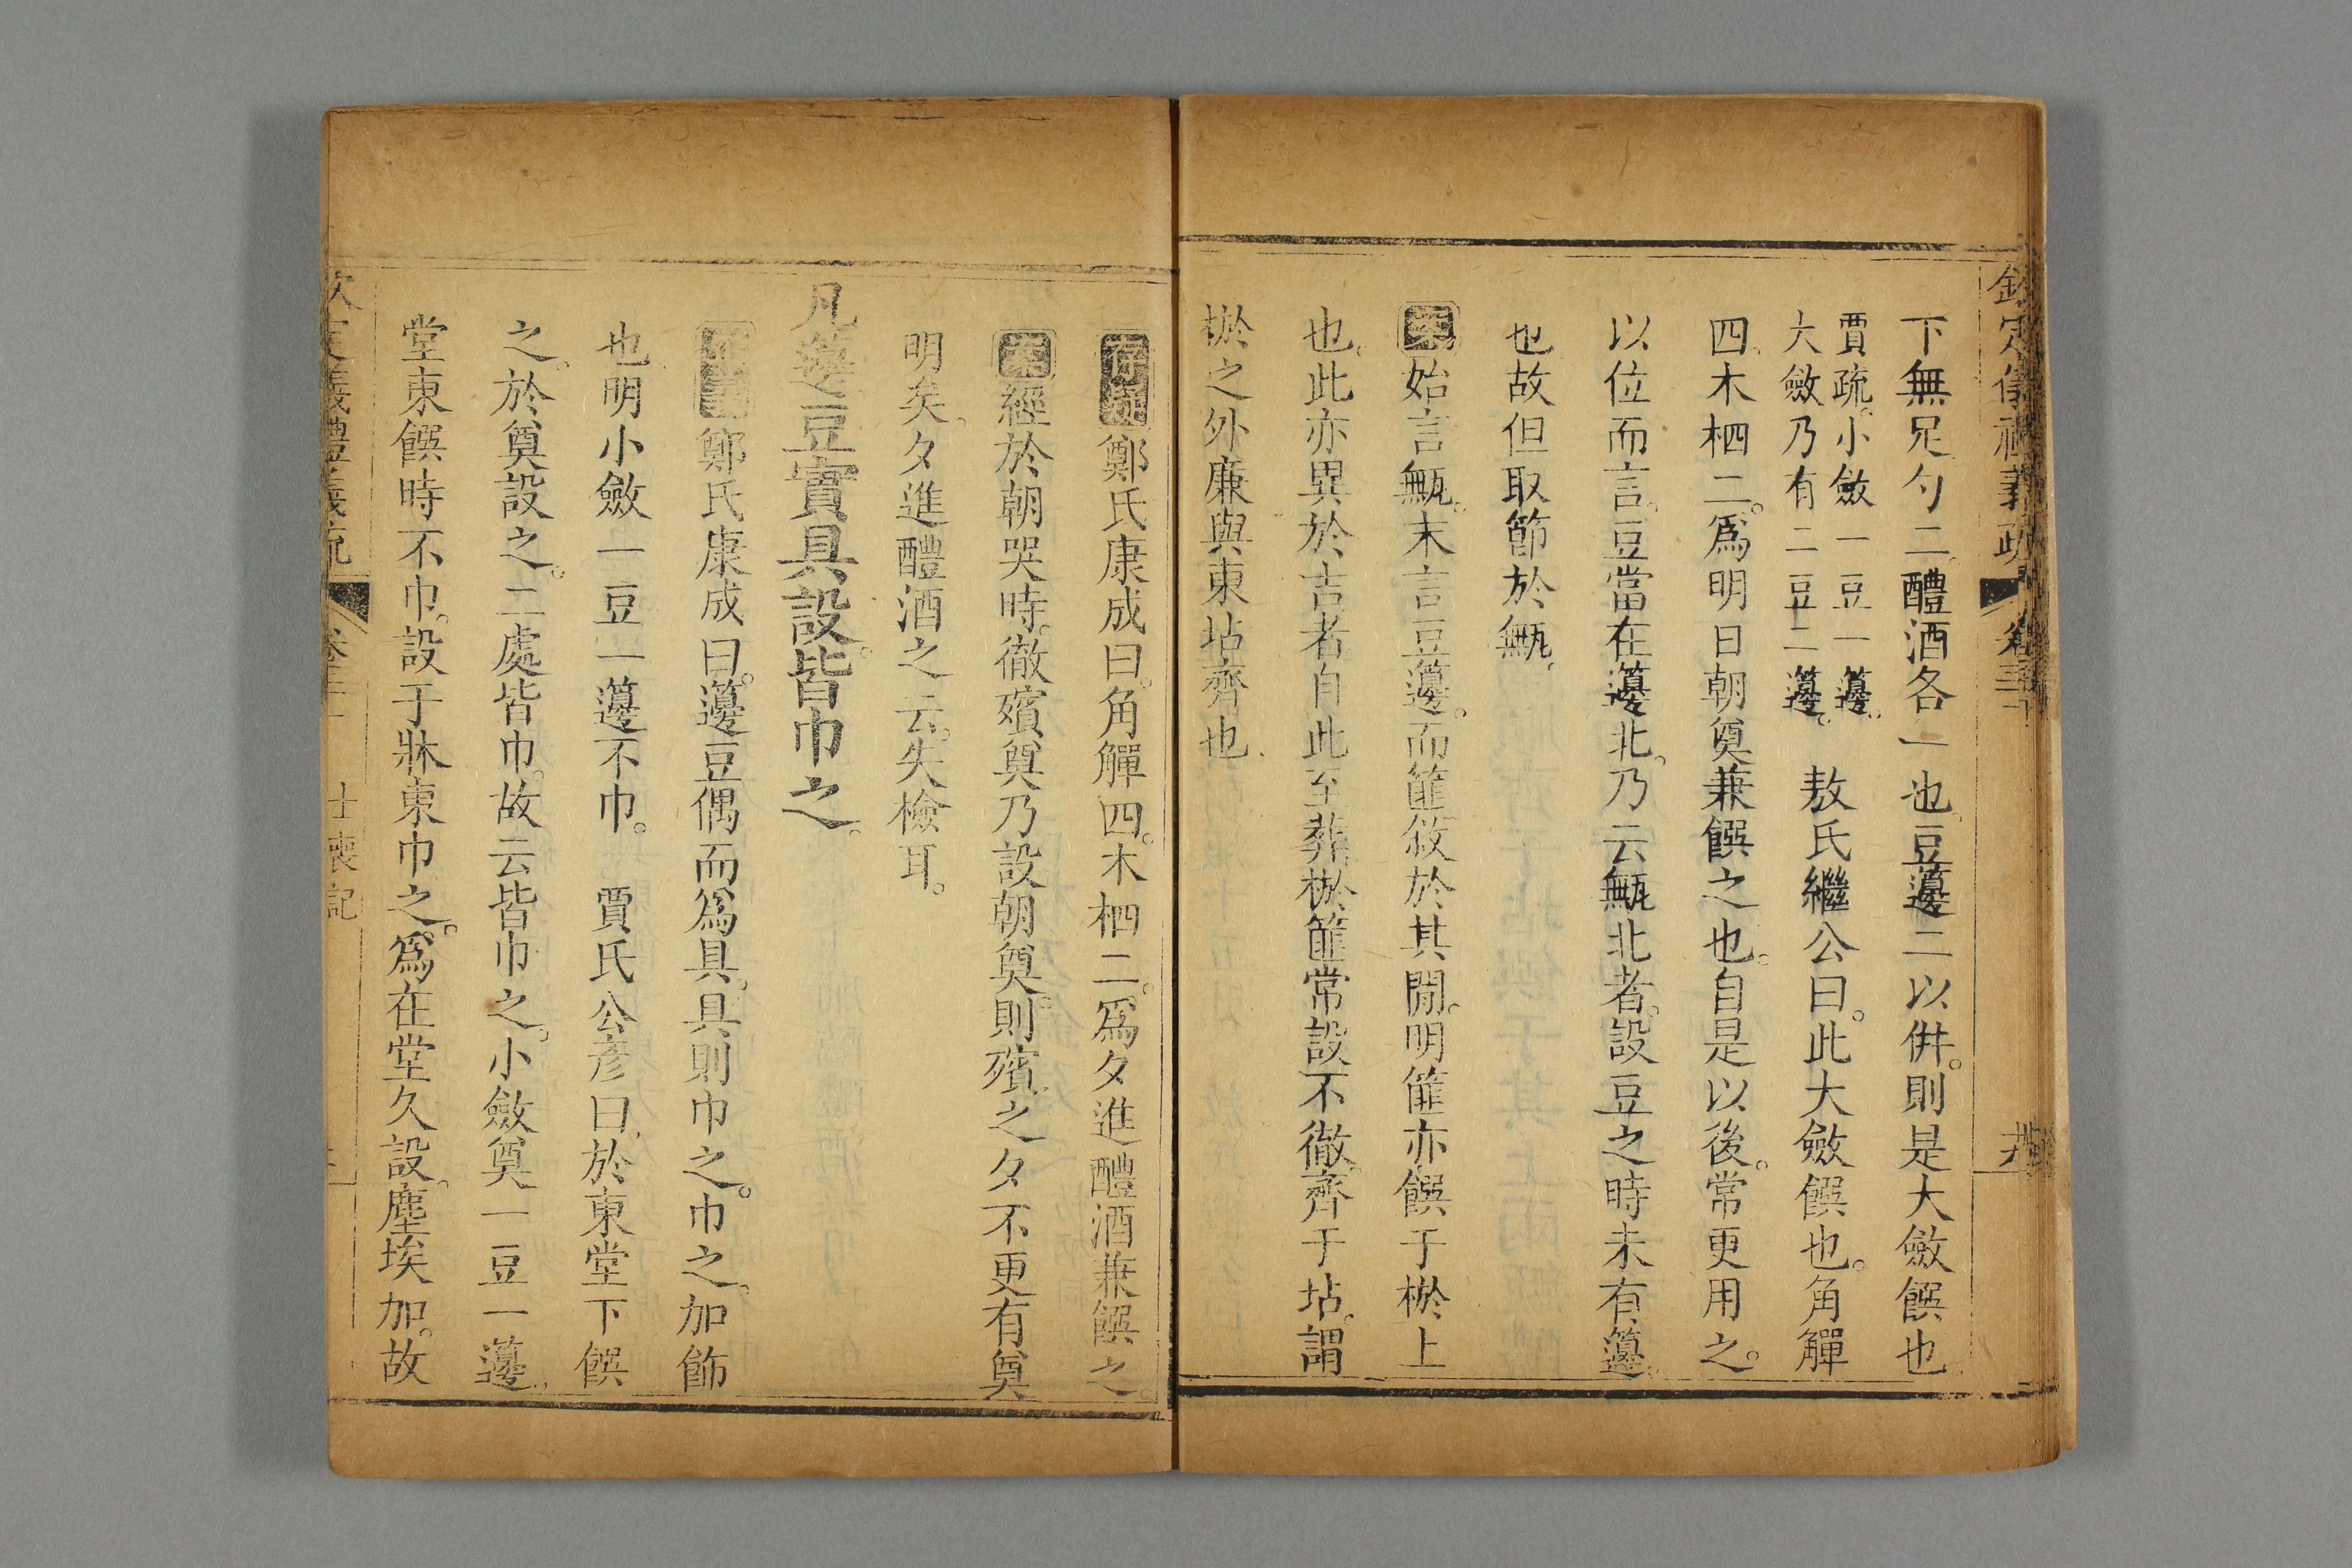 欽定儀禮義疏 卷三十
下無足勺二醴酒各一也豆籩二以併則是大斂饌也
賈疏小斂一豆一籩
大斂乃有二豆二籩
敖氏繼公曰此大斂饌也角觶
四木柶二爲明日朝奠兼饌之也自是以後常更用之
以位而言豆當在籩北乃云甒北者設豆之時未有籩
也故但取節於甒
案始言甒末言豆籩而篚敘於其閒明篚亦饌于棜上
也此亦異於吉者自此至葬棜篚常設不徹齊于坫謂
棜之外廉與東坫齊也
存疑鄭氏康成曰角觶四木柶二爲夕進醴酒兼饌之
案經於朝哭時徹殯奠乃設朝奠則殯之夕不更有奠
明矣夕進醴酒之云失檢耳
凡籩豆實具設皆巾之
正義鄭氏康成曰籩豆偶而爲具具則巾之巾之加飾
也明小斂一豆一籩不巾 賈氏公彥曰於東堂下饌
之於奠設之二處皆巾故云皆巾之小斂奠一豆一籩
堂東饌時不巾設于牀東巾之爲在堂久設塵埃加故
士喪記